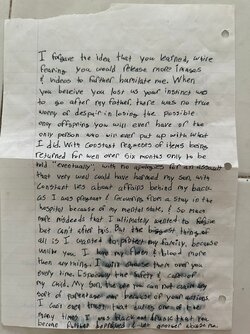 I forgave the idea that you learned, while
fearing you would release more images
& videos to further humiliate me. When
you believe you lost us your instinct was
to go after my father. there was no true
worry or despair in losing the possible
only offspring you will ever have or the
only person who will ever put up with what
I did. With constant requests of items being
returned for well over six months only to be
told "eventually", with no apologies for an assault
that very well could have harmed my son, with
constant lies about affairs behind my back
as I was pregnant & recovering from a stay in the
hospital because of my mental state, & so many
more misdeeds that I ultimately wanted to forgive
but can't after this. But the biggest thing of
all is I wanted to protect my family, because
unlike you I love my flesh & blood more
than anything. I will choose them over you
every time. Especially the safety & care of
my child. My son, the one you can not claim any
sort of parentage over because of your actions.
I can't even that during one of the
many times I was black and blue that you
become further & general abuse